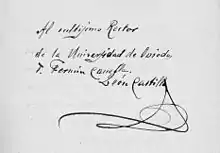 Al cultísimo Rector
de la Universidad de Oviedo,
D. Fermín Canella.
León Castillo